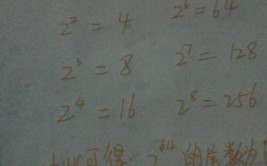 2² = 4 2⁶ = 64
2³ = 8 2⁷ = 128
2⁴ = 16 2⁸ = 256
可得 2⁶⁴ 的尾数为